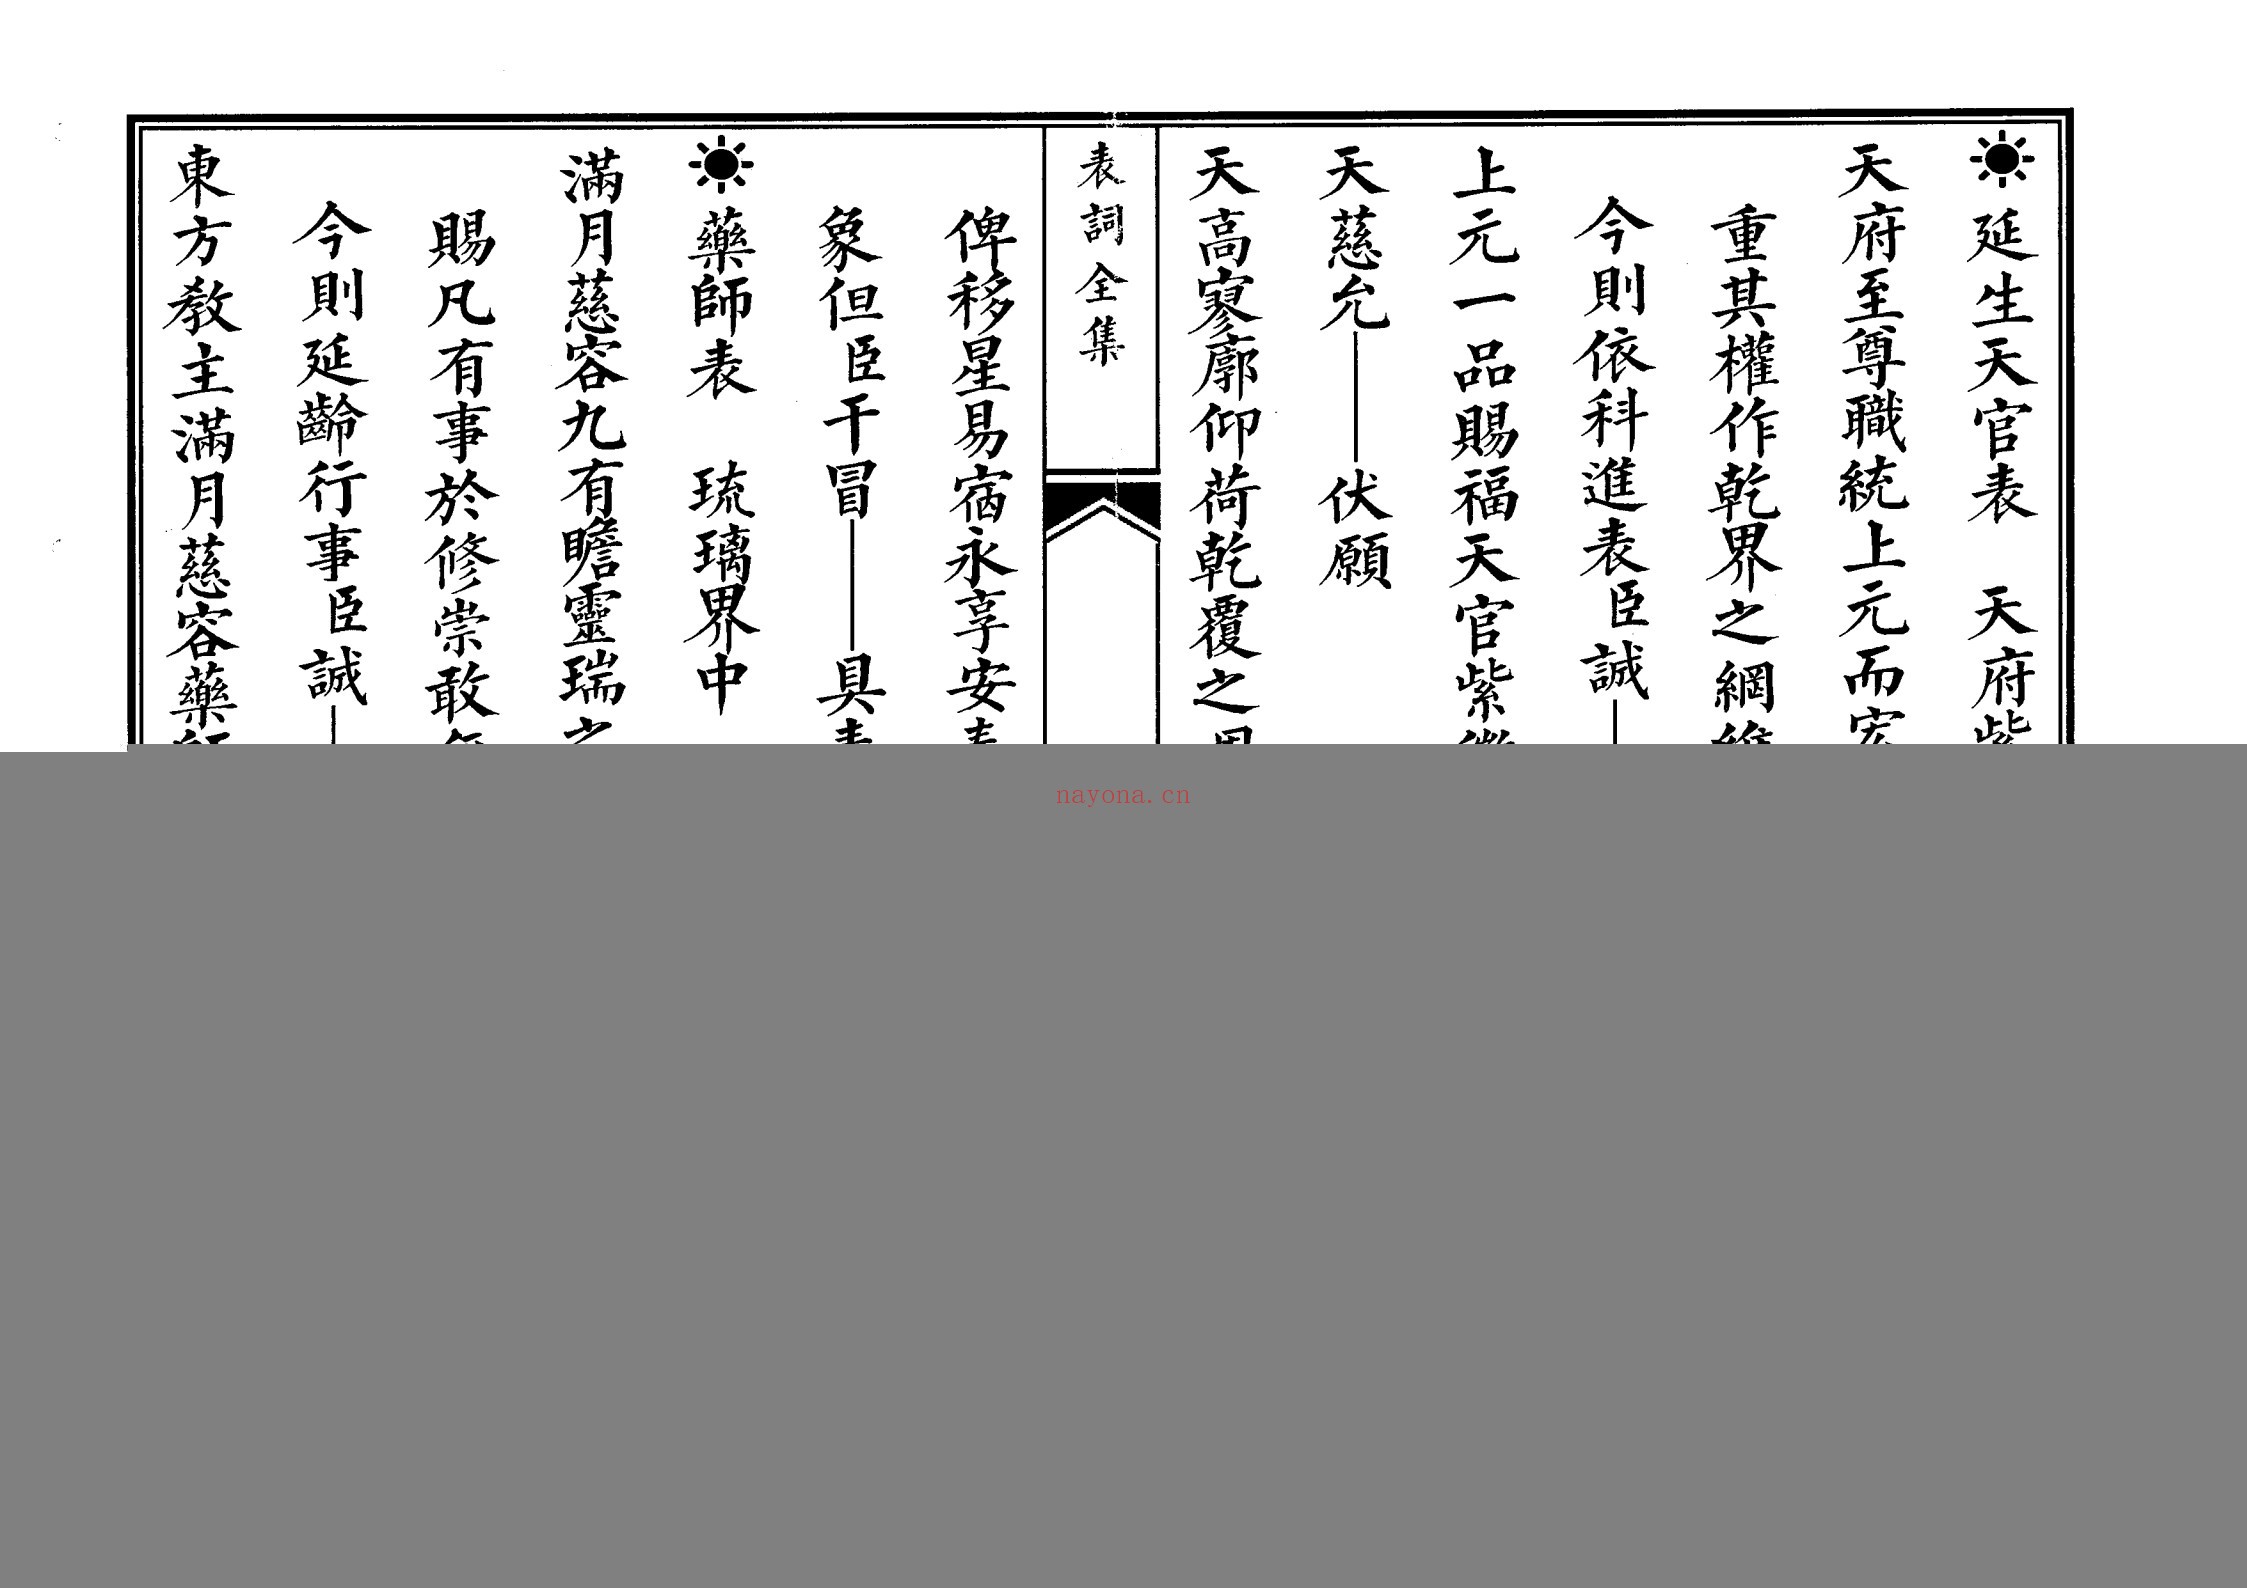 延生天官表　天府紫
天府至尊職統上元而宏
重其權作乾界之綱維
今則依科進表臣誠
上元一品賜福天官紫微
天慈允——伏願
天高寥廓仰荷乾覆之恩
表詞全集
俾移星易宿永享安泰
象但臣干冒——具表
藥師表　琉璃界中
滿月慈容九有瞻靈瑞之
賜凡有事於修崇敢
今則延齡行事臣誠
東方教主滿月慈容藥師
nayona.cn